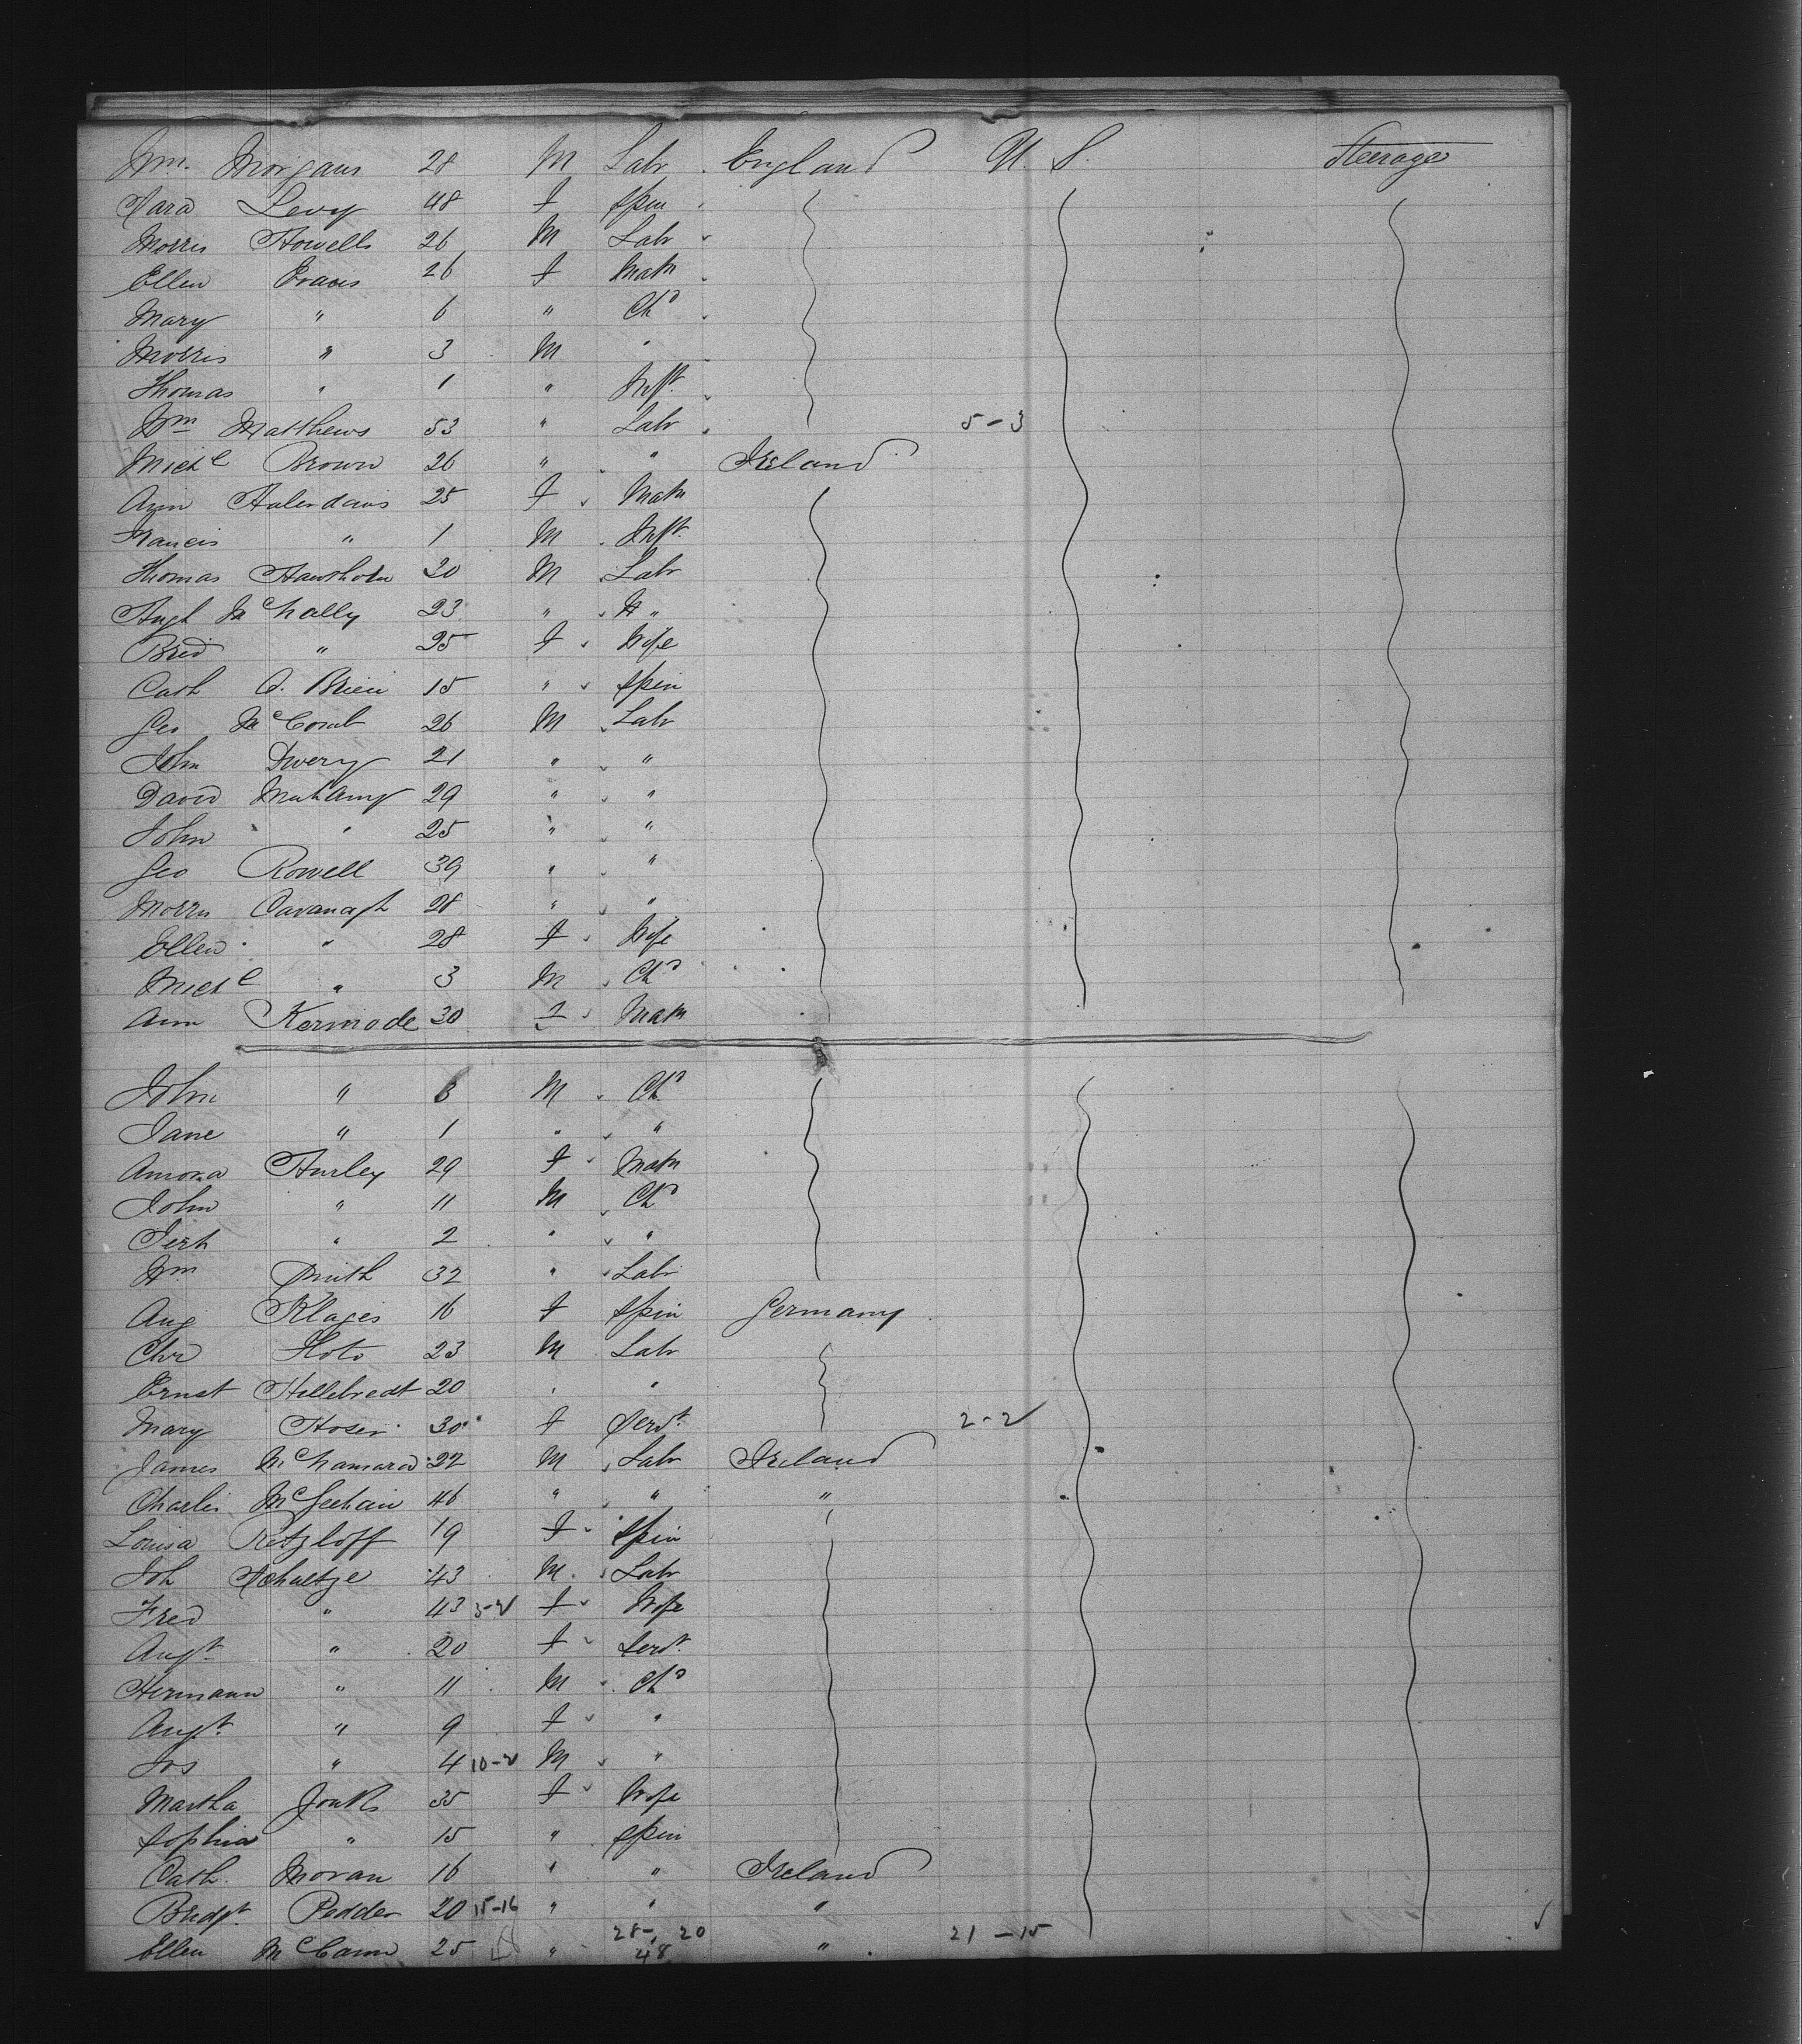 Wm. Morgans 28 M Labr England U. S. Steerage
Sara Levy 48 f Spin
Morris Howells 26 M Labr
Ellen Evans 26 f Matn
Mary " 6 " Chd
Morris " 3 M "
Thomas " 1 " Inft.
Wm Matthews 53 " Labr 5-3
Michl Brown 26 " " Ireland
Ann 25 f Matn
Francis " 1 M Inft.
Thomas Hawthorn 20 M Labr
Hugh McNally 23 " "
Brid " 25 f Wife
Cath O. Brien 15 " Spin
Geo McComb 26 M Labr
John 21 " "
David 29 " "
John " 25 " "
Geo Rowell 39 " "
Morris Cavanagh 28 " "
Ellen " 28 f Wife
Michl " 3 M Chd
Ann Kermode 30 f Matn
John " 3 M Chd
Jane " 1 " "
Hurley 29 f Matn
John " 11 M Chd
Jerh " 2 " "
Wm Smith 32 " Labr
Aug Klages 16 f Spin Germany
Chr 23 M Labr
Ernst Hillebredt 20 " "
Mary Hoser 30 f Servt. 2-2
James McNamara 22 M Labr Ireland
Charles McGeehan 46 " " "
Louisa Retzloff 19 f Spin
Joh Schultze 43 M Labr
Fred " 43 3-2 f Wife
Augt. " 20 f Servt.
Hermann " 11 M Chd
Augt. " 9 f "
Jos " 4 10-2 M "
Martha 35 f Wife
Sophia " 15 " Spin
Cath. Moran 16 " " Ireland
Bridgt. Pedder 20 15-16 " " "
28-20 21-15
Ellen McCann 25 " 48 "